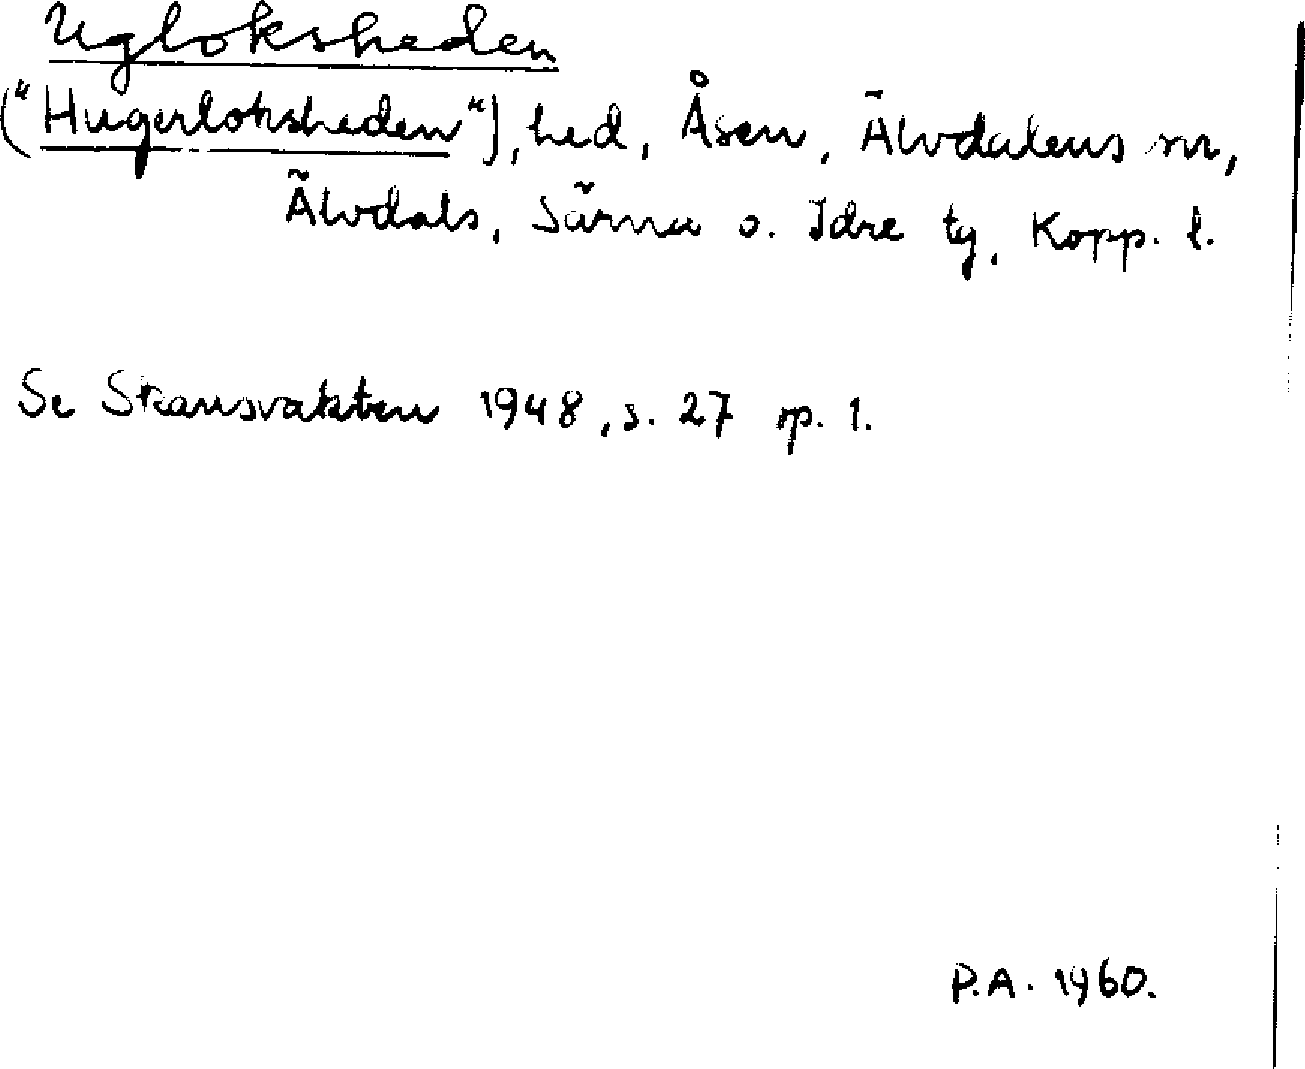 Ugloksheden
("Hugerloksheden"), hed, Åsen, Älvdalens sn,
Älvdals, Särna o. Idre tg, Kopp. l.
Se Skansvakten 1948, s. 27 sp. 1.
P.A. 1960.